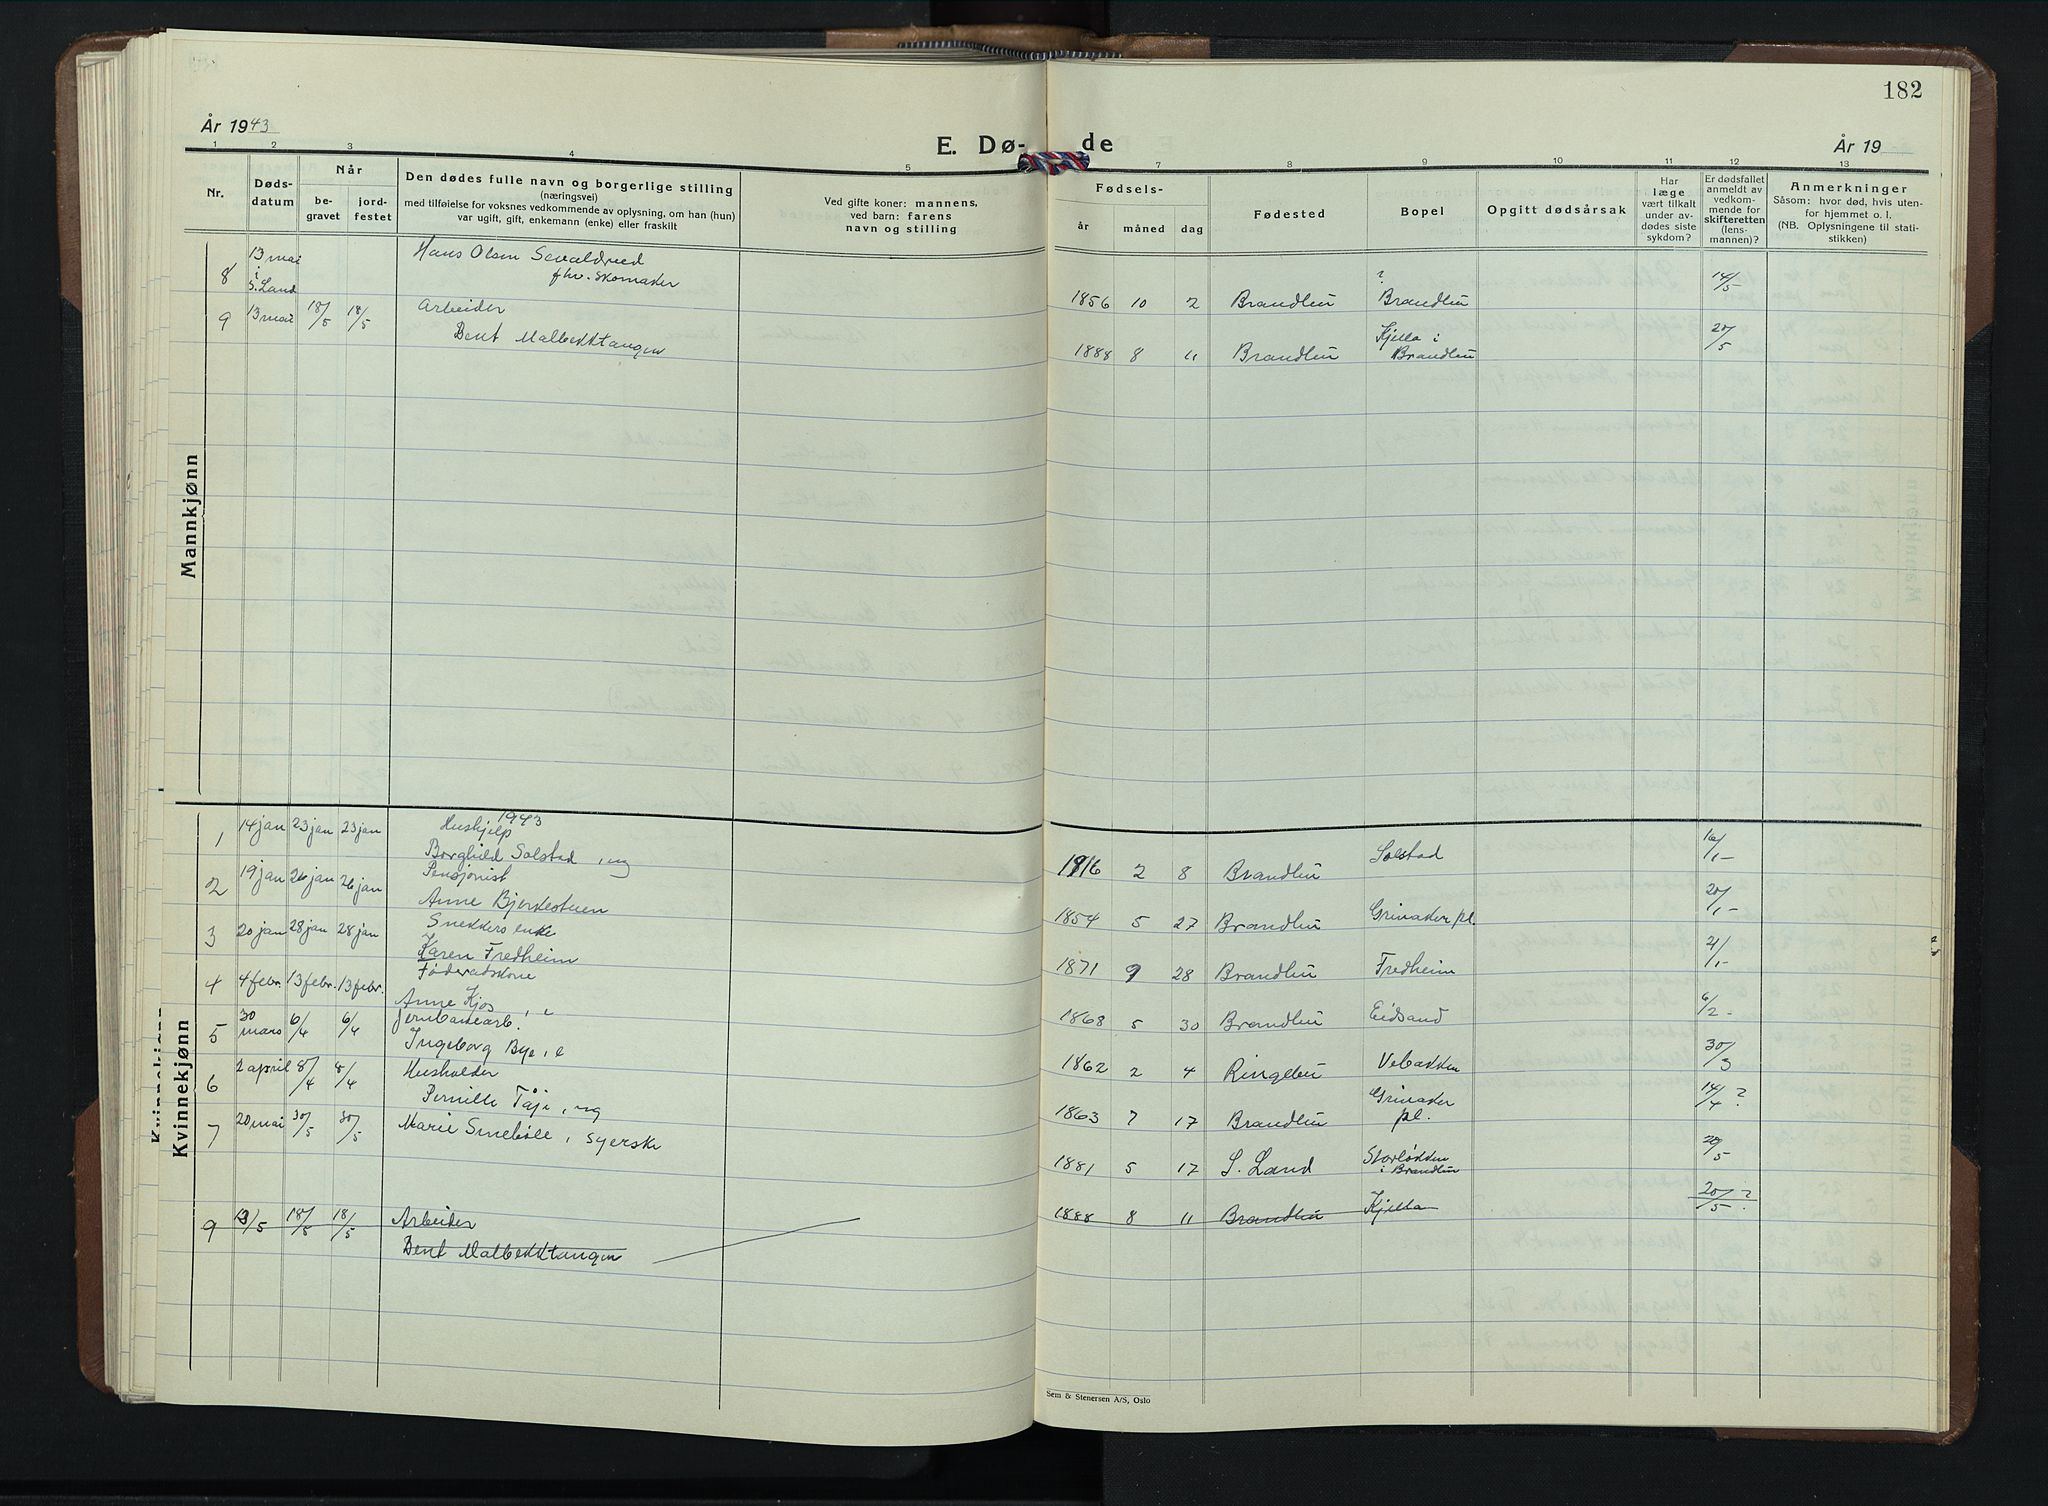 182
År 1943
E. Dø- de
År 19
1 2 3 4 5 7 8 9 10 11 12 13
Nr.
Døds-
datum
Når
be-
gravet
jord-
festet
Den dødes fulle navn og borgerlige stilling
(næringsvei)
med tilføielse for voksnes vedkommende av oplysning, om han (hun)
var ugift, gift, enkemann (enke) eller fraskilt
Ved gifte koner: mannens,
ved barn: farens
navn og stilling
Fødsels-
år måned dag
Fødested
Bopel
Opgitt dødsårsak
Har
læge
vært tilkalt
under av-
dødes siste
sykdom?
Er dødsfallet
anmeldt av
vedkom-
mende for
skifteretten
(lens-
mannen)?
Anmerkninger
Såsom: hvor død, hvis uten-
for hjemmet o. l.
(NB. Oplysningene til stati-
stikken)
Mannkjønn
8 13 mai i S. Land Hans Olsen
fhv. Skomaker
1856 10 2 Brandbu ? Brandbu 14/5
9 13 mai 18/5 18/5 Arbeider
Bent Malbekktangen
1888 8 11 Brandbu Kjilla i Brandbu 20/5
Kvinnekjønn
Kvinnekjønn
1943
1 14 jan 23 jan 23 jan Hushjelp
Borghild Solstad, ug
1916 2 8 Brandbu Solstad 16/1-
2 19 jan 26 jan 26 jan Pensjonist
Anne Bjerkestuen
1854 5 27 Brandbu Grinaker pl. 20/1-
3 20 jan 28 jan 28 jan Snekkers enke
Karen Fredheim
1871 9 28 Brandbu Fredheim 21/1-
4 4 febr. 13 febr. 13 febr. Føderadskone
Anne Kjos, e
1868 5 30 Brandbu Eidsand 6/2-
5 30 mars 6/4 6/4 jernbanearb.
Ingeborg Bye, e
1862 2 4 Ringebu Vebakken 30/3
6 2 april 8/4 8/4 Husholder
Pernille Tøje, ug
1863 7 17 Brandbu Grinaker pl. 14/4 ?
7 20 mai 30/5 30/5 Marie Smebøle, syerske
1881 5 17 S. Land Storløkken i Brandbu 20/5
9 13/5 18/5 18/5 Arbeider
Bent Malbekktangen
1888 8 11 Brandbu Kjilla 20/5 ?
Sem & Stenersen A/S, Oslo